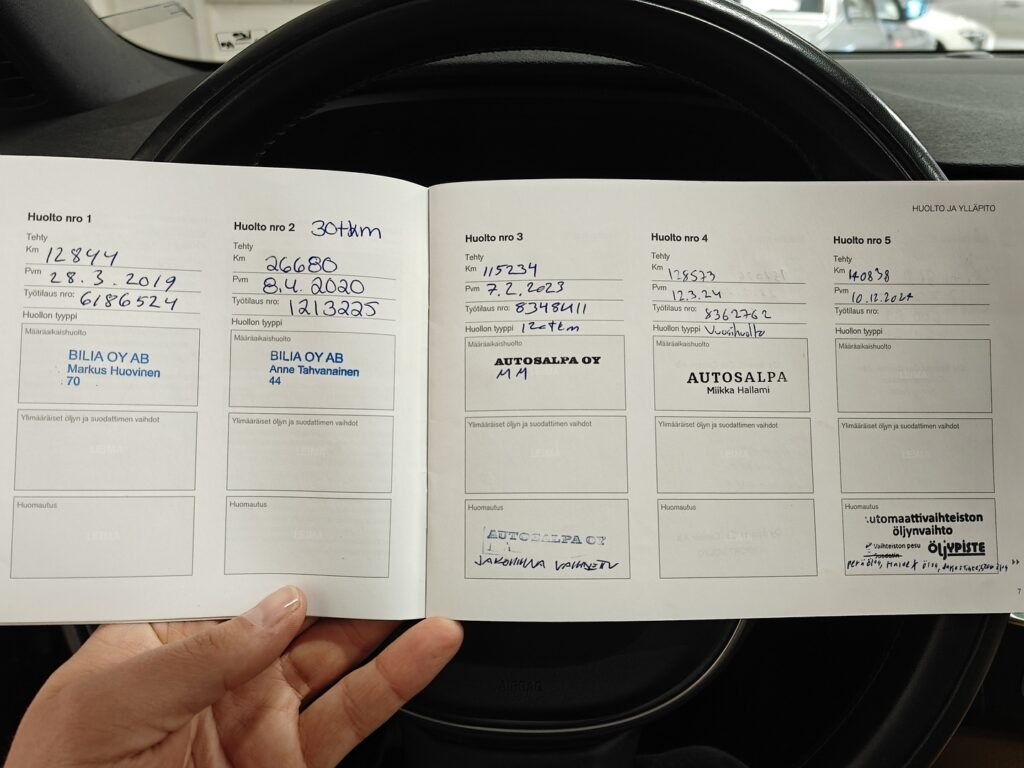 HUOLTO JA YLLÄPITO
Huolto nro 1
Tehty
Km 12844
Pvm 28.3.2019
Työtilaus nro: 6186524
Huollon tyyppi
Määräaikaishuolto
BILIA OY AB
Markus Huovinen
70
Ylimääräiset öljyn ja suodattimen vaihdot
LEIMA
Huomautus
LEIMA
Huolto nro 2 30tkm
Tehty
Km 26680
Pvm 8.4.2020
Työtilaus nro: 1213225
Huollon tyyppi
Määräaikaishuolto
BILIA OY AB
Anne Tahvanainen
44
Ylimääräiset öljyn ja suodattimen vaihdot
LEIMA
Huomautus
Huolto nro 3
Tehty
Km 115234
Pvm 7.2.2023
Työtilaus nro: 8348411
Huollon tyyppi 120tkm
Määräaikaishuolto
AUTOSALPA OY
MM
Ylimääräiset öljyn ja suodattimen vaihdot
LEIMA
Huomautus
AUTOSALPA OY
JAKOHIHNA VAIHDETTU
Huolto nro 4
Tehty
Km 128573
Pvm 12.3.24
Työtilaus nro: 8362762
Huollon tyyppi Vuosihuolto
Määräaikaishuolto
AUTOSALPA
Miikka Hallami
Ylimääräiset öljyn ja suodattimen vaihdot
LEIMA
Huomautus
Huolto nro 5
Tehty
Km 140838
Pvm 10.12.2024
Työtilaus nro:
Huollon tyyppi
Määräaikaishuolto
LEIMA
Ylimääräiset öljyn ja suodattimen vaihdot
LEIMA
Huomautus
utomaattivaihteiston
öljynvaihto
Vaihteiston pesu
Suodatin
ÖLJYPISTE
peräöljy,
7
AIRBAG